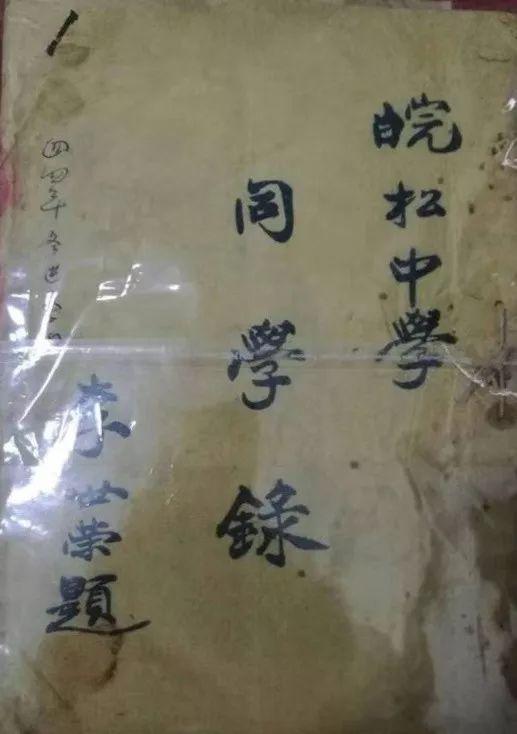 皖松中學
同學錄
李世榮題
四四年冬